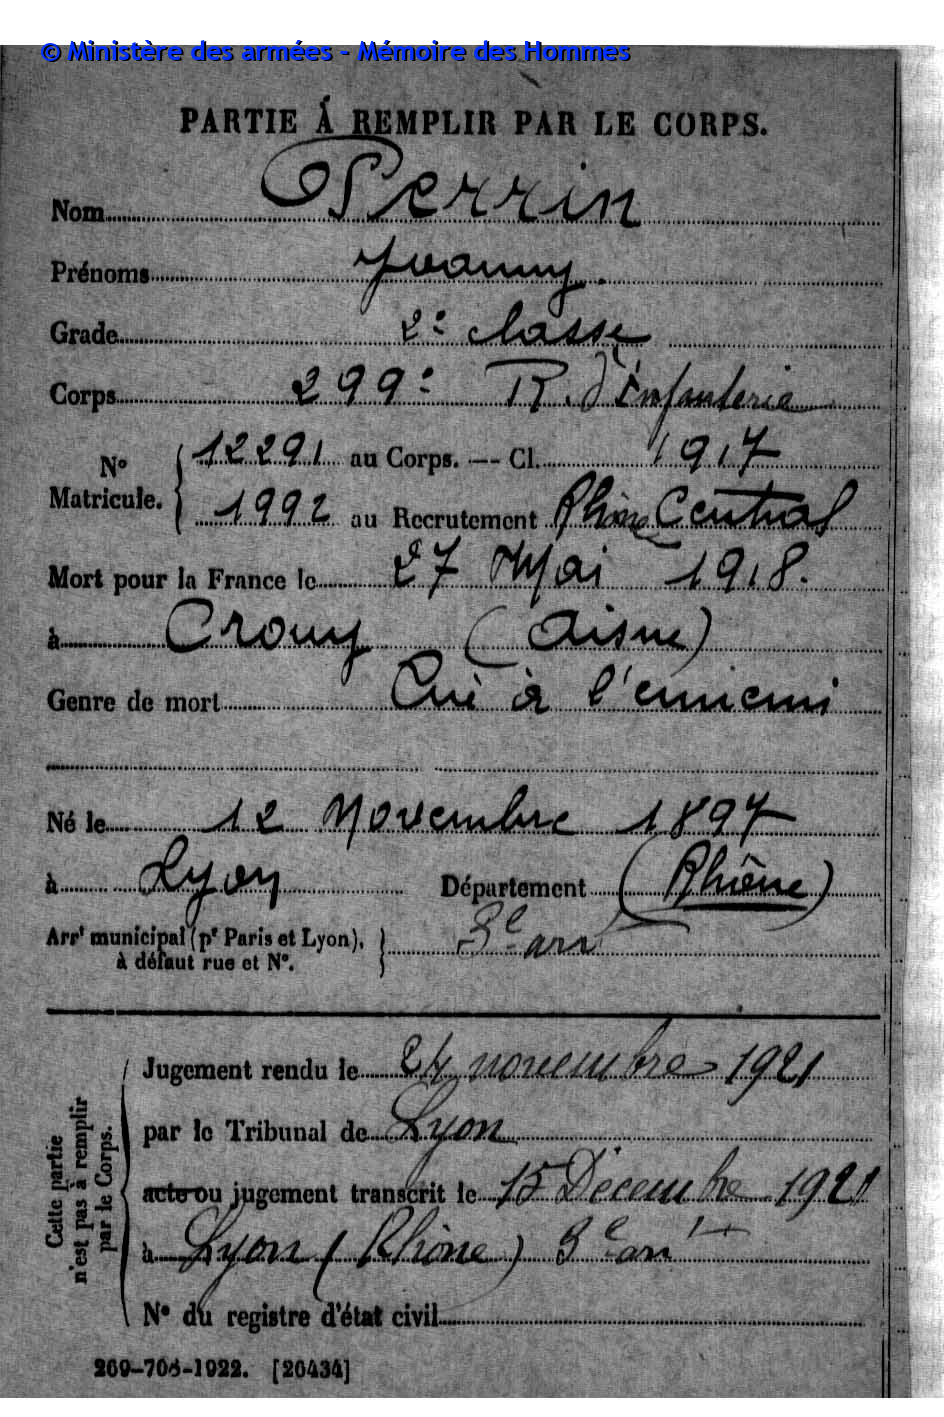 © Ministère des armées - Mémoire des Hommes
PARTIE Á REMPLIR PAR LE CORPS.
Nom Perrin
Prénoms Joanny.
Grade 2e classe
Corps 299e R. d'Infanterie
N° Matricule. 12291 au Corps. — Cl. 1917
1992 au Recrutement Rhône Central
Mort pour la France le 27 Mai 1918.
à Crouy (Aisne)
Genre de mort Tué à l'ennemi
Né le 12 Novembre 1897
à Lyon Département (Rhône)
Arrt municipal (pr Paris et Lyon), 3e arrt
à défaut rue et N°.
Cette partie n'est pas à remplir par le Corps.
Jugement rendu le 24 novembre 1921
par le Tribunal de Lyon
acte ou jugement transcrit le 15 Décembre 1921
à Lyon (Rhône) 3e arrt
N° du registre d'état civil
269-708-1922. [26434]